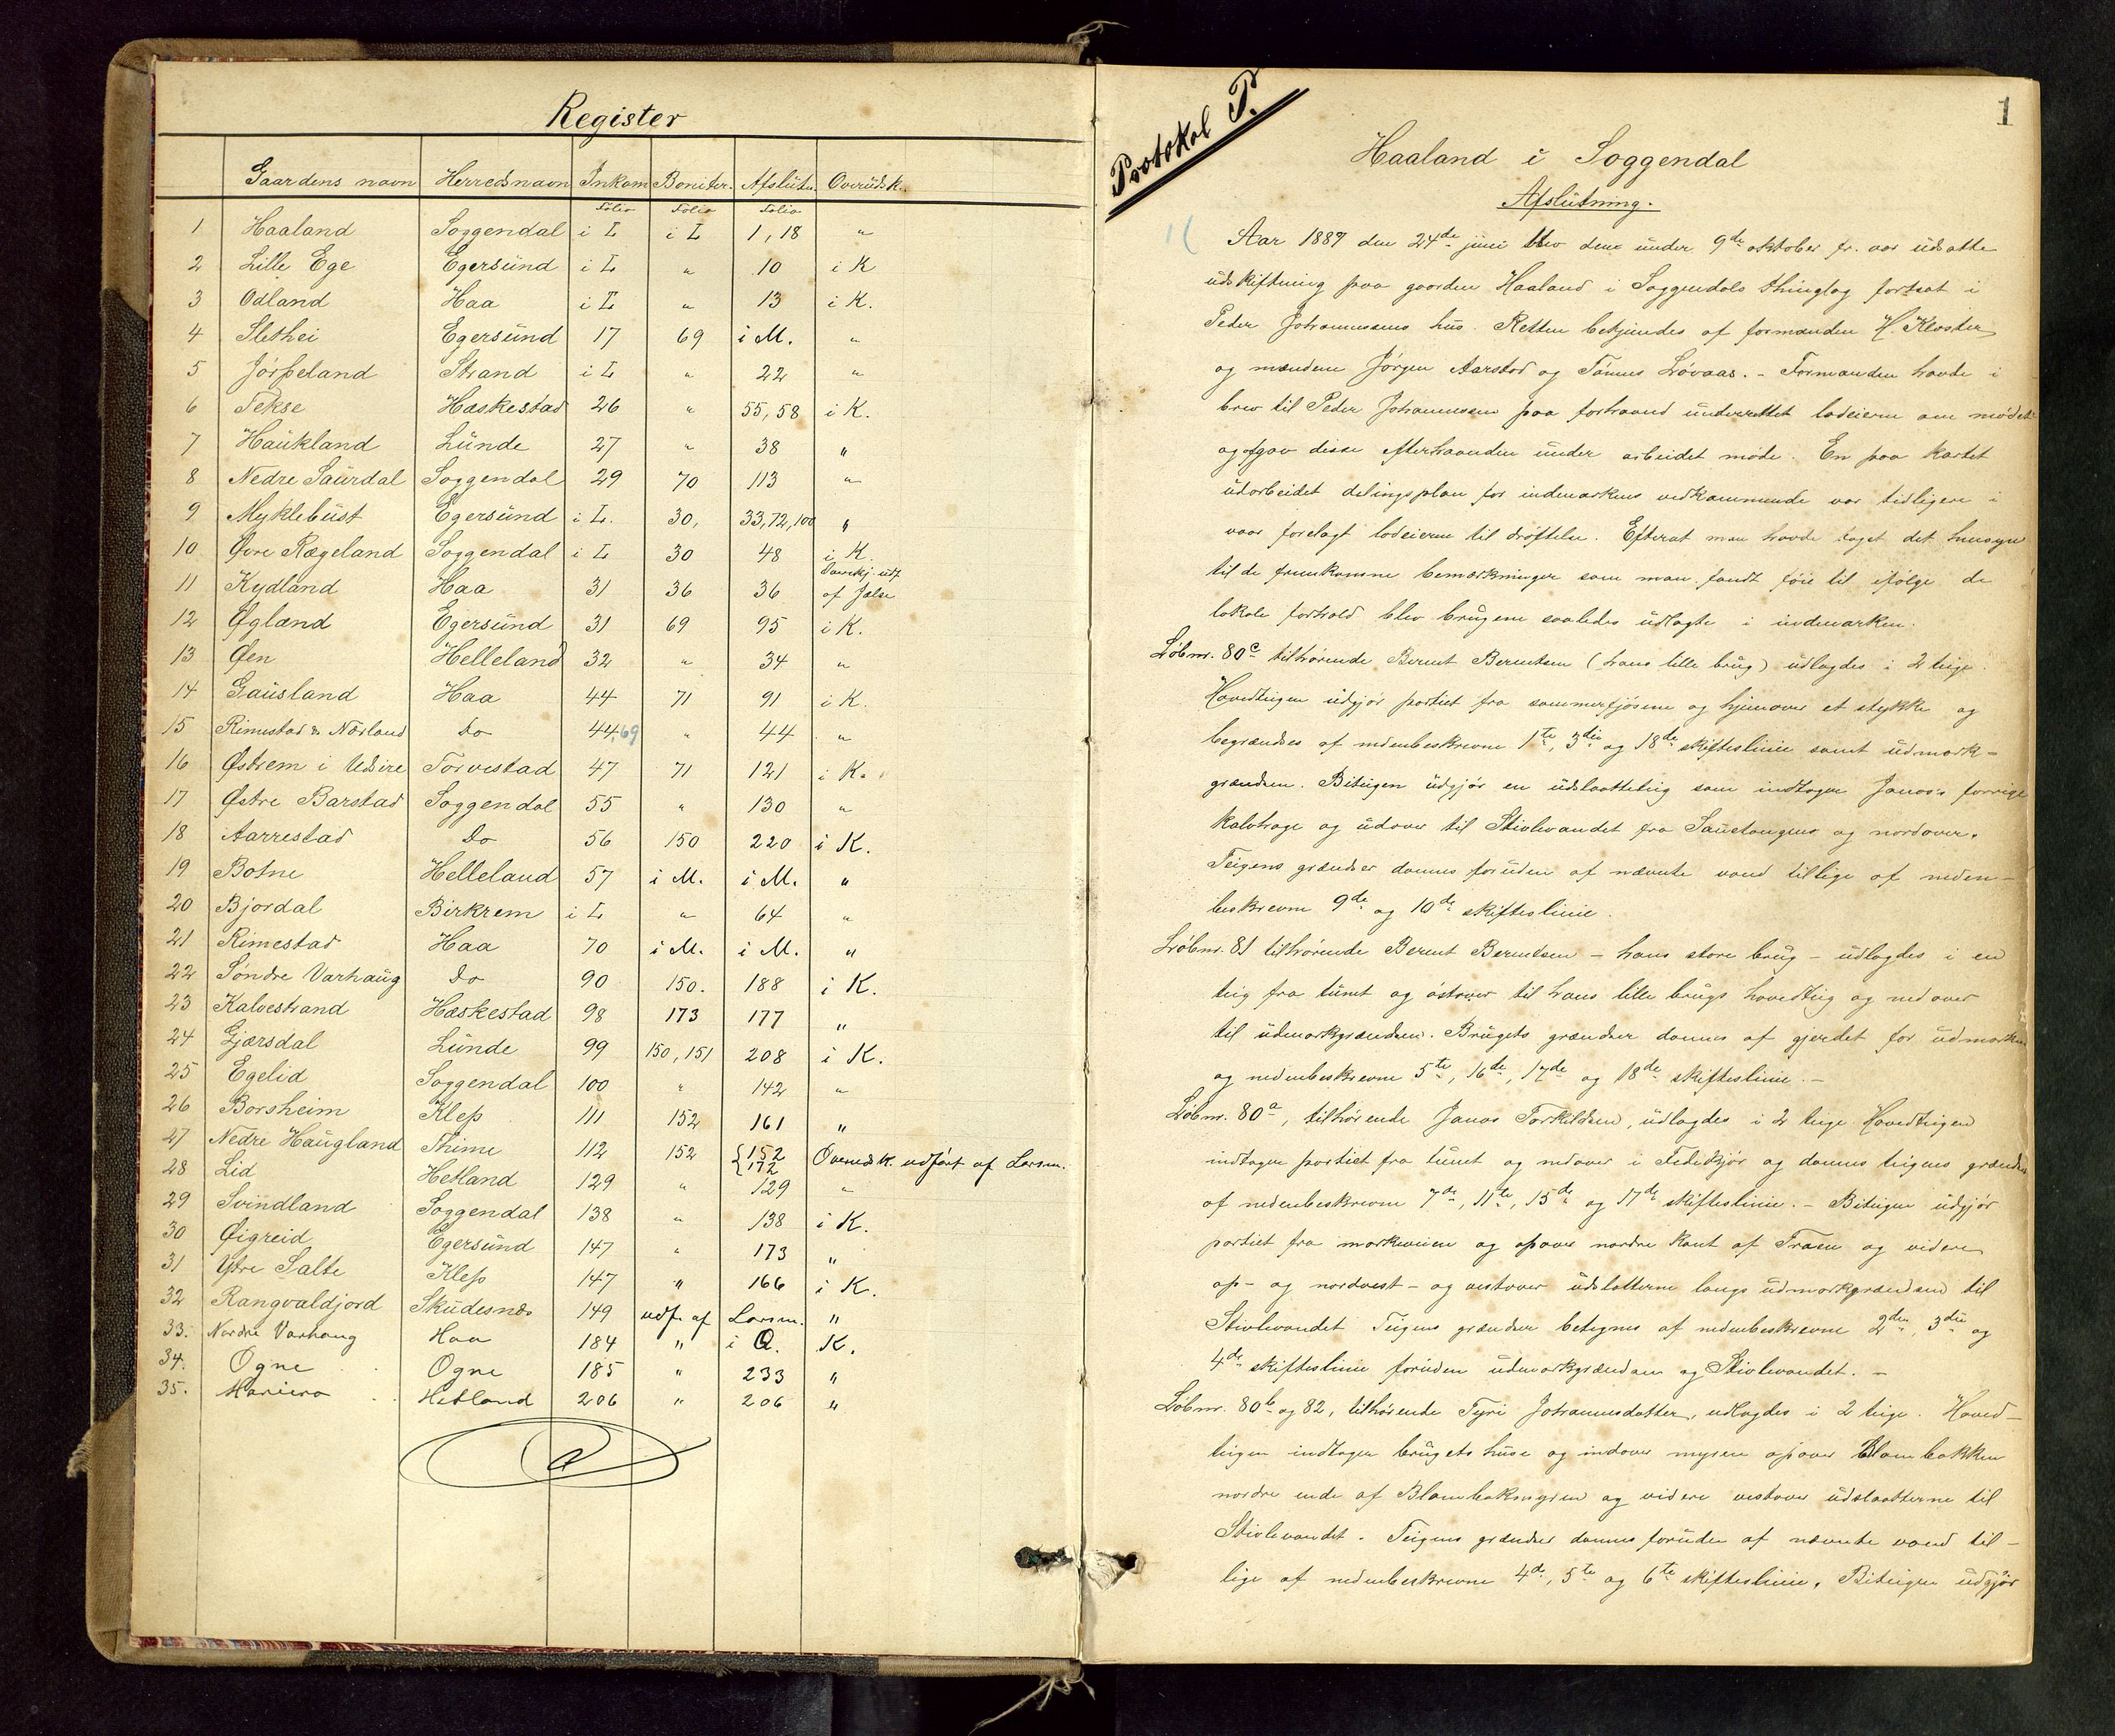 Register
Gaardens navn Herredsnavn Inkom Boniter. Afslutn. Overudsk.
Folio Folio Folio
1 Haaland Soggendal i L i L 1, 18 "
2 Lille Ege Egersund i L " 10 i K
3 Odland Haa i L " 13 i K.
4 Slethei Egersund 17 69 i M. "
5 Jörpeland Strand i L " 22 "
6 Tekse Hæskestad 26 " 55, 58 i K.
7 Haukland Lunde 27 " 38 "
8 Nedre Saurdal Soggendal 29 70 113 "
9 Myklebust Egersund i L. 30, 33, 72, 100 "
10 Øvre Rægeland Soggendal i L 30 48 i K.
11 Kydland Haa 31 36 36 udf. af Jælsa
12 Øgland Egersund 31 69 95 i K.
13 Øen Helleland 32 " 34 "
14 Gausland Haa 44 71 91 i K.
15 Rimestad & Nærland Do 44,69 " 44 "
16 Østrem i Udsire Torvestad 47 71 121 i K.
17 Østre Barstad Soggendal 55 " 130 "
18 Aarrestad Do 56 150 220 i K.
19 Botne Helleland 57 i M. i M. "
20 Bjordal Birkrem i L " 64 "
21 Rimestad Haa 70 i M. i M. "
22 Søndre Varhaug Do 90 150. 188 i K.
23 Kalvestrand Hæskestad 98 173 177 "
24 Gjærsdal Lunde 99 150, 151 208 i K.
25 Egelid Soggendal 100 " 142 "
26 Borsheim Klep 111 152 161 "
27 Nedre Haugland Thime 112 152 {152 172 Overudsk. udført af Larsen.
28 Lid Hetland 129 " 129 "
29 Svindland Soggendal 138 " 138 i K.
30 Øigreid Egersund 147 " 173 "
31 Ytre Salte Klep 147 " 166 i K.
32 Rangvaldjord Skudesnæs 149 udf. af Larsen. "
33. Nordre Varhaug Haa 184 " i Q. K.
34. Ogne Ogne 185 " 233 "
35. Mariero Hetland 206 " 206 "
Protokol P.
1
Haaland i Soggendal
Afslutning.
Aar 1887 den 24de juni blev den under 9de oktober f. a. udsatte
udskiftning paa gaarden Haaland i Soggendals thinglag fortsat i
Peder Johannesens hus. Retten betjendes af formanden H. Kloster
og mændene Jørgen Aarstad og Tønnes Løvaas. - Formanden havde i
brev til Peder Johannesen paa forhaand underrettet lodeierne om mødet
og gav disse efterhaanden under arbeidet møde. En paa kartet
udarbeidet delingsplan for indmarkens vedkommende var tidligere i
vaar forelagt lodeierne til drøftelse. Efterat man havde taget det hensyn
til de fremkomne bemærkninger som man fandt føie til ifølge de
lokale forhold blev brugene saaledes udlagte i indmarken.
Løbnr. 80c tilhørende Bernt Berntsen (hans lille brug) udlagdes i 2 teige.
Hovedteigen udgjør partiet fra sommerfjøsene og hjemover et stykke og
begrændses af nedenbeskrevne 1te, 3die og 18de skifteslinie samt udmark-
grændsen. Biteigen udgjør en udslaatteteig som indtager Janas's forrige
kalvhage og udover til Stivlevandet fra Saustangen og nordover.
Teigens grændser dannes foruden af nævnte vand tillige af neden-
beskrevne 9de og 10de skifteslinie.
Løbnr. 81 tilhørende Bernt Berntsen - hans store brug - udlagdes i en
teig fra tunet og østover til hans lille brugs hovedteig og nedover
til udmarkgrændsen. Brugets grændser dannes af gjerdet for udmarken
og nedenbeskrevne 5te, 16de, 17de og 18de skifteslinie. -
Løbnr. 80a, tilhørende Janas Torkildsen, udlagdes i 2 teige Hovedteigen
indtager partiet fra tunet og nedover i og dannes teigens grændser
af nedenbeskrevne 7de, 11te, 15de og 17de skifteslinie. - Biteigen udgjør
partiet fra markeveien og opover nordre kant af Traen og videre
op- og nordvest- og vestover udslatterne langs udmarkgrændsen til
Stivlevandet Teigens grændser betegnes af nedenbeskrevne 2den, 3die og
4de skifteslinie foruden udmarkgrændsen og Stivlevandet. -
Løbnr. 80b og 82, tilhørende Tyri Johannesdatter, udlagdes i 2 teige. Hoved-
teigen indtager brugets huse og indover myren opover Blombakken
nordre ende af Blombakmyren og videre vestover udslaatterne til
Stivlevandet. Teigens grændser dannes foruden af nævnte vand til-
lige af nedenbeskrevne 4de, 5te og 6te skifteslinie. Biteigen udgjør